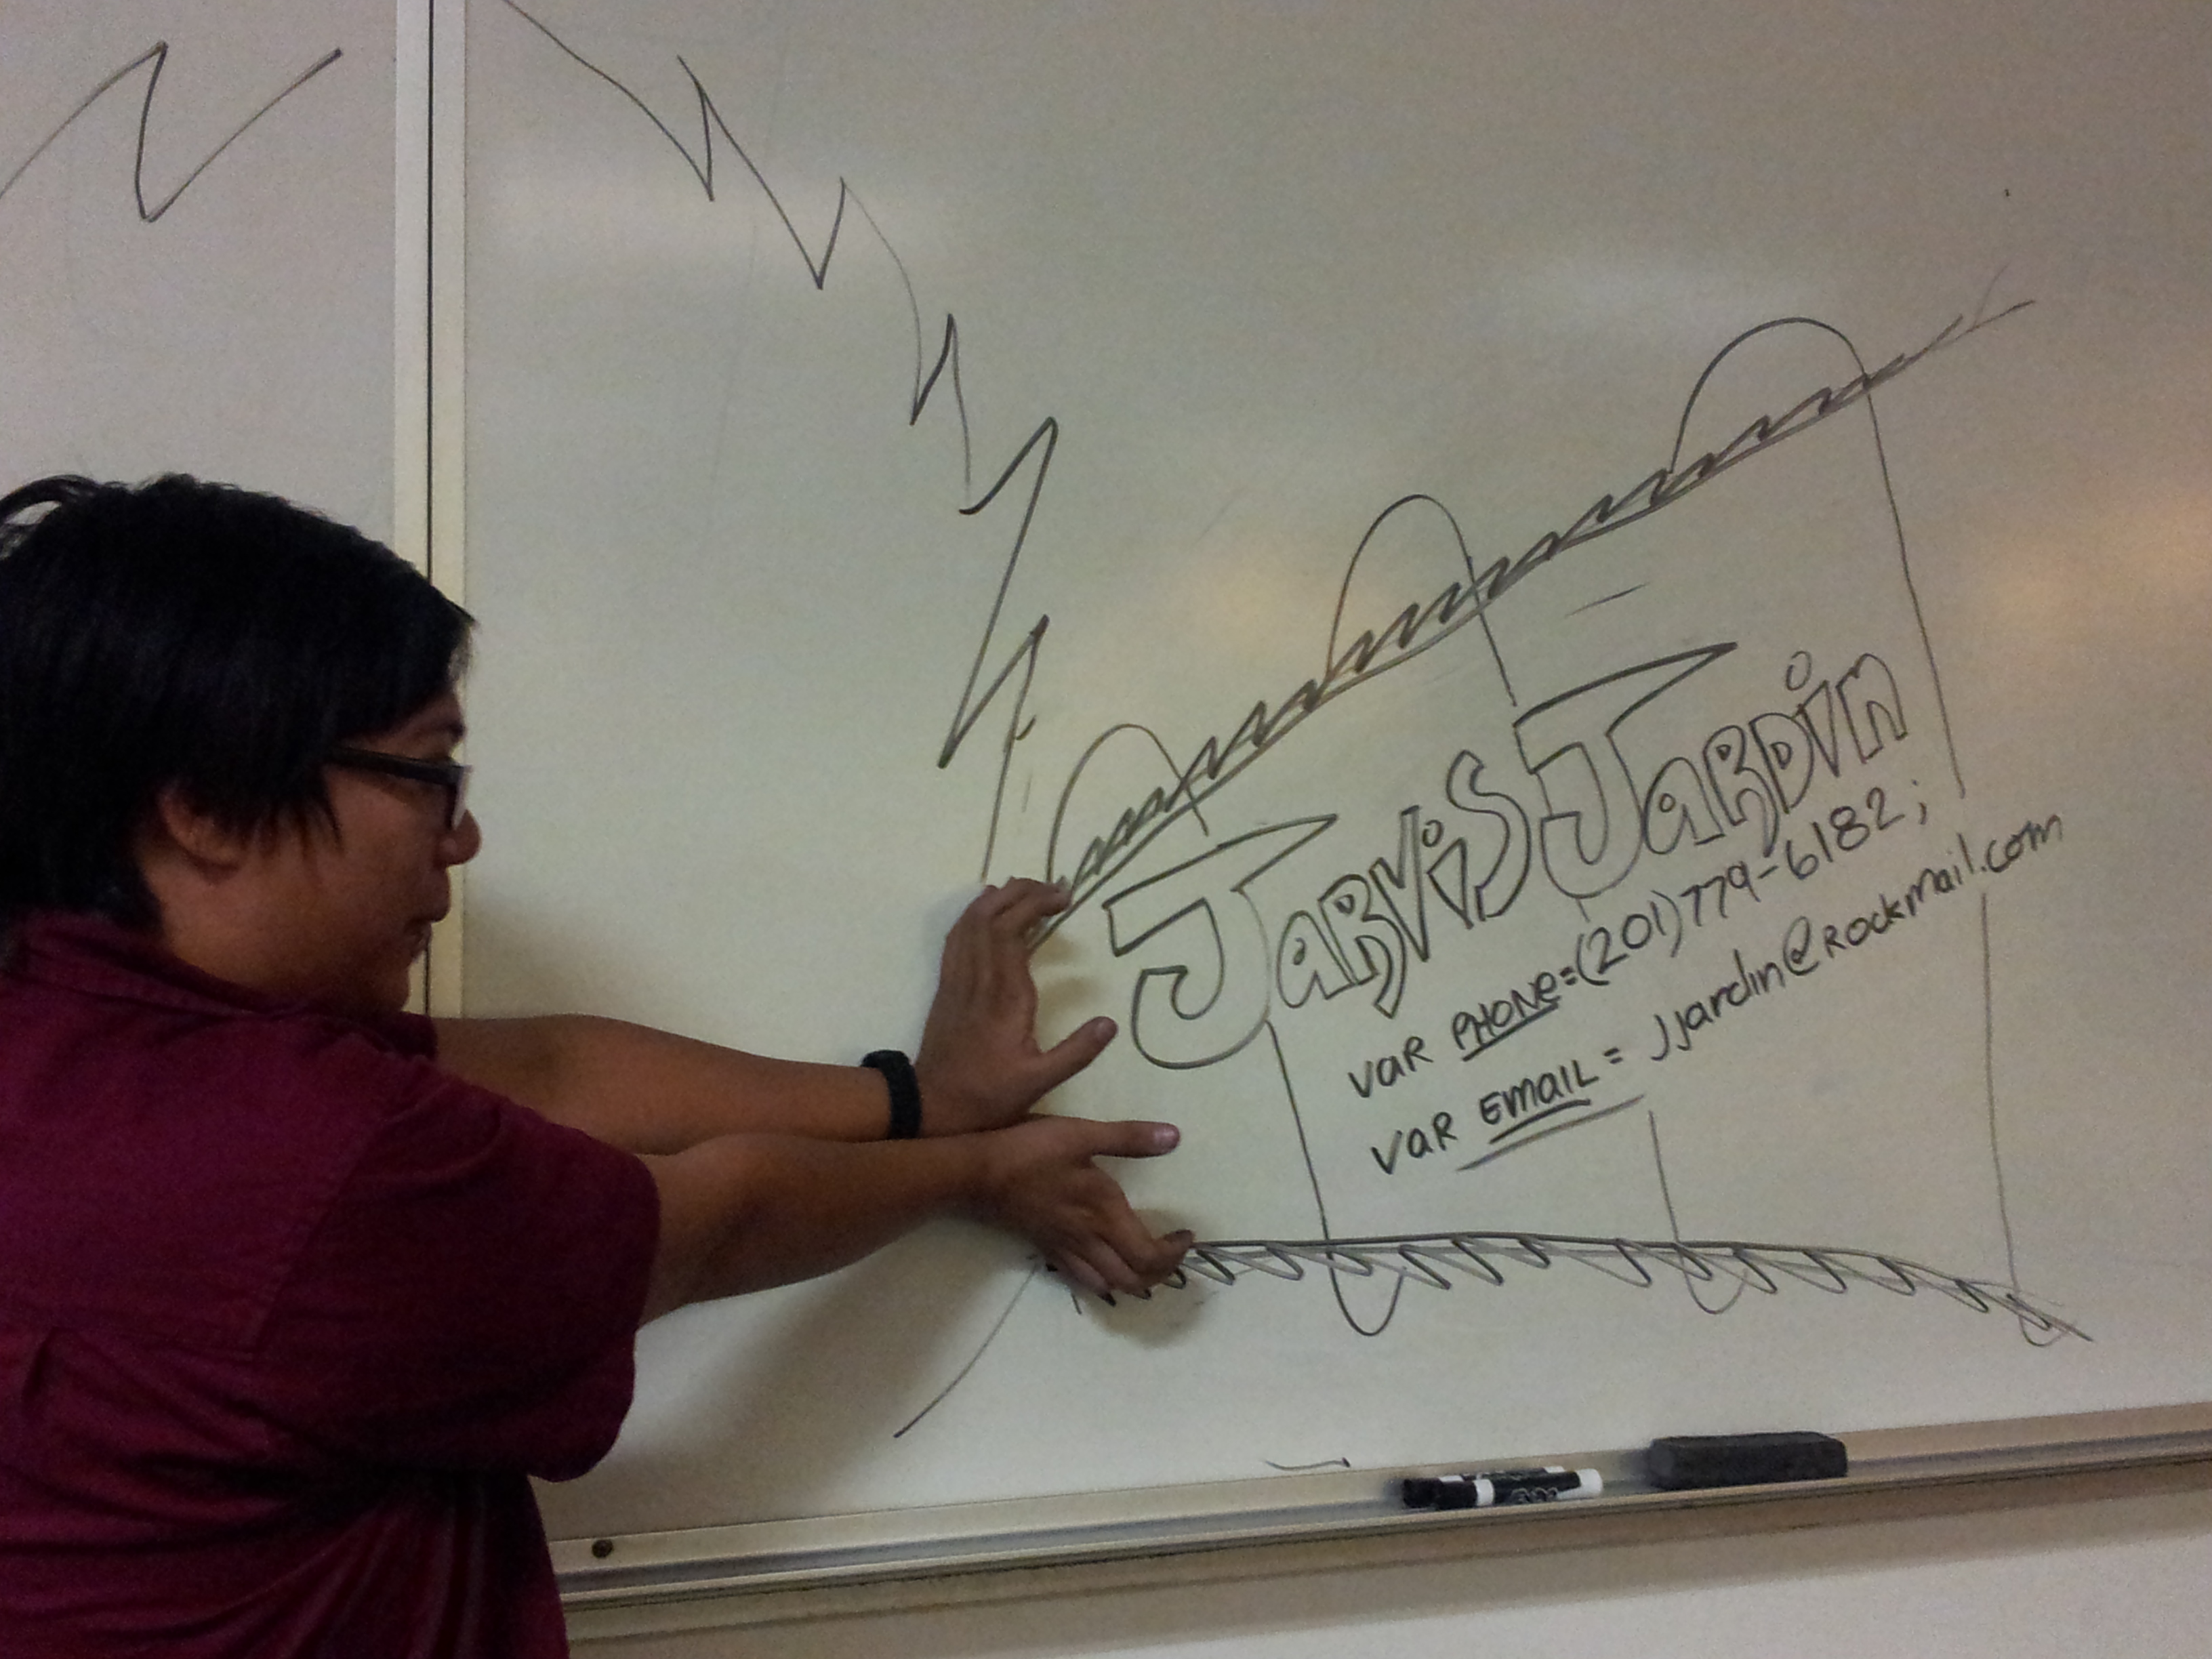 JARViS JARDin
VaR PHONe=(201)779-6182;
VaR EmaiL = jjardin@Rockmail.com